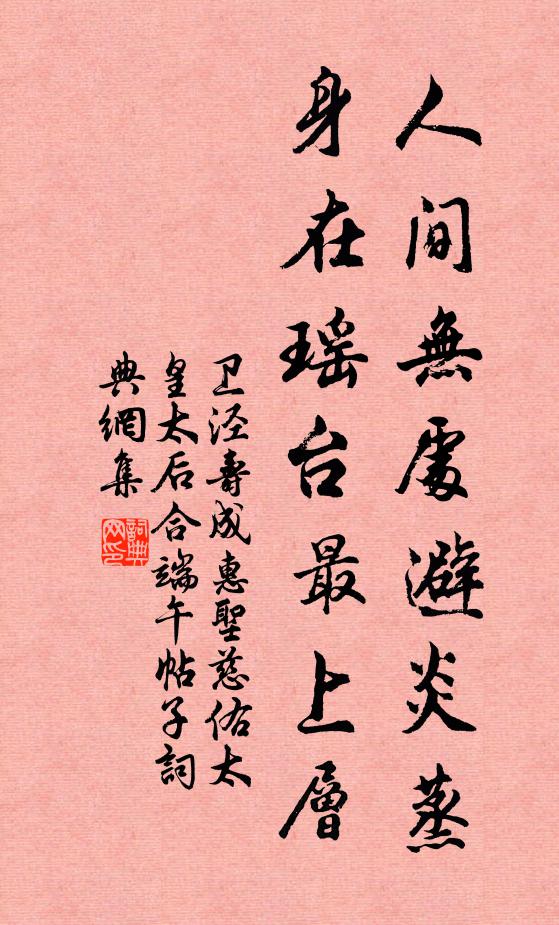 人间無處避炎蒸
身在瑶台最上層
卫泾壽成惠聖慈佑太
皇太后合端午帖子詞
典網集
詞典网印